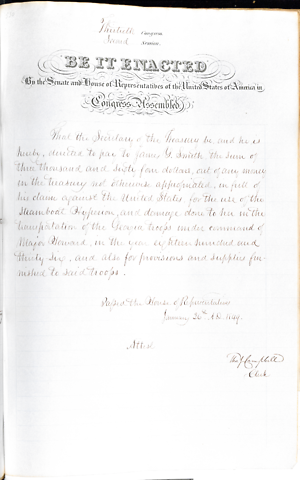 Thirtieth Congress
Second Session
BE IT ENACTED
By the Senate and House of Representatives of the United States of America in
Congress Assembled,
That the Secretary of the Treasury be and he is
hereby, directed to pay to James G. Smith the sum of
three thousand and sixty four dollars, out of any money
in the treasury not otherwise appropriated, in full of
his claim against the United States for the use of the
Steamboat and damage done to her in the
transportation of the Georgia troops under command of
Major Howard, in the year eighteen hundred and
thirty six, and also for provisions and supplies fur-
nished to said troops.
Passed the House of Representatives
January 26th A.D. 1849.
Attest
Tho J Campbell
Clerk